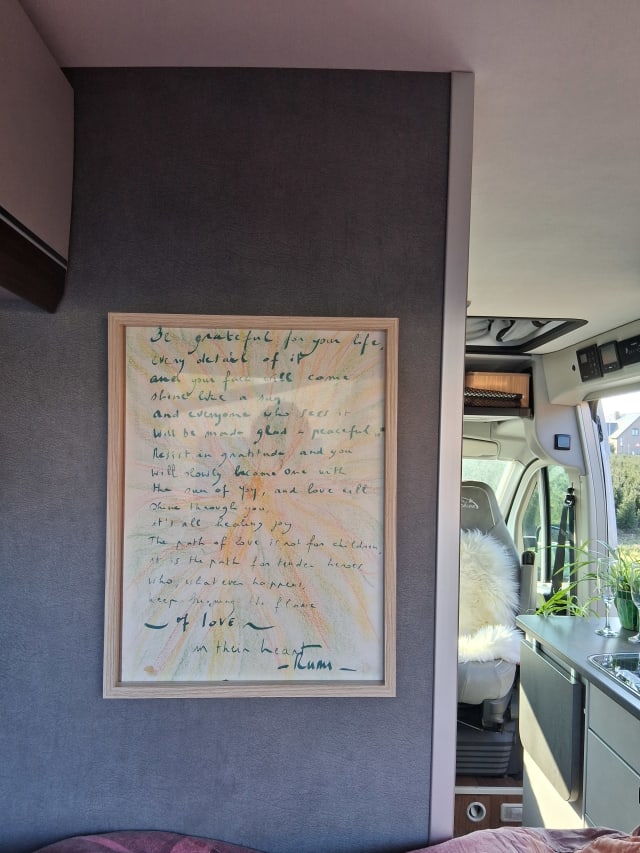 Be grateful for your life,
every detail of it
and your face will come
shine like a sun
and everyone who sees it
will be made glad & peaceful
Resist in gratitude and you
will slowly become one with
the sun of joy, and love will
shine through you
it's all healing joy
The path of love is not for children,
it is the path for tender heroes
who, whatever happens,
keep the flame
~ of love ~
in their heart
- Rumi -